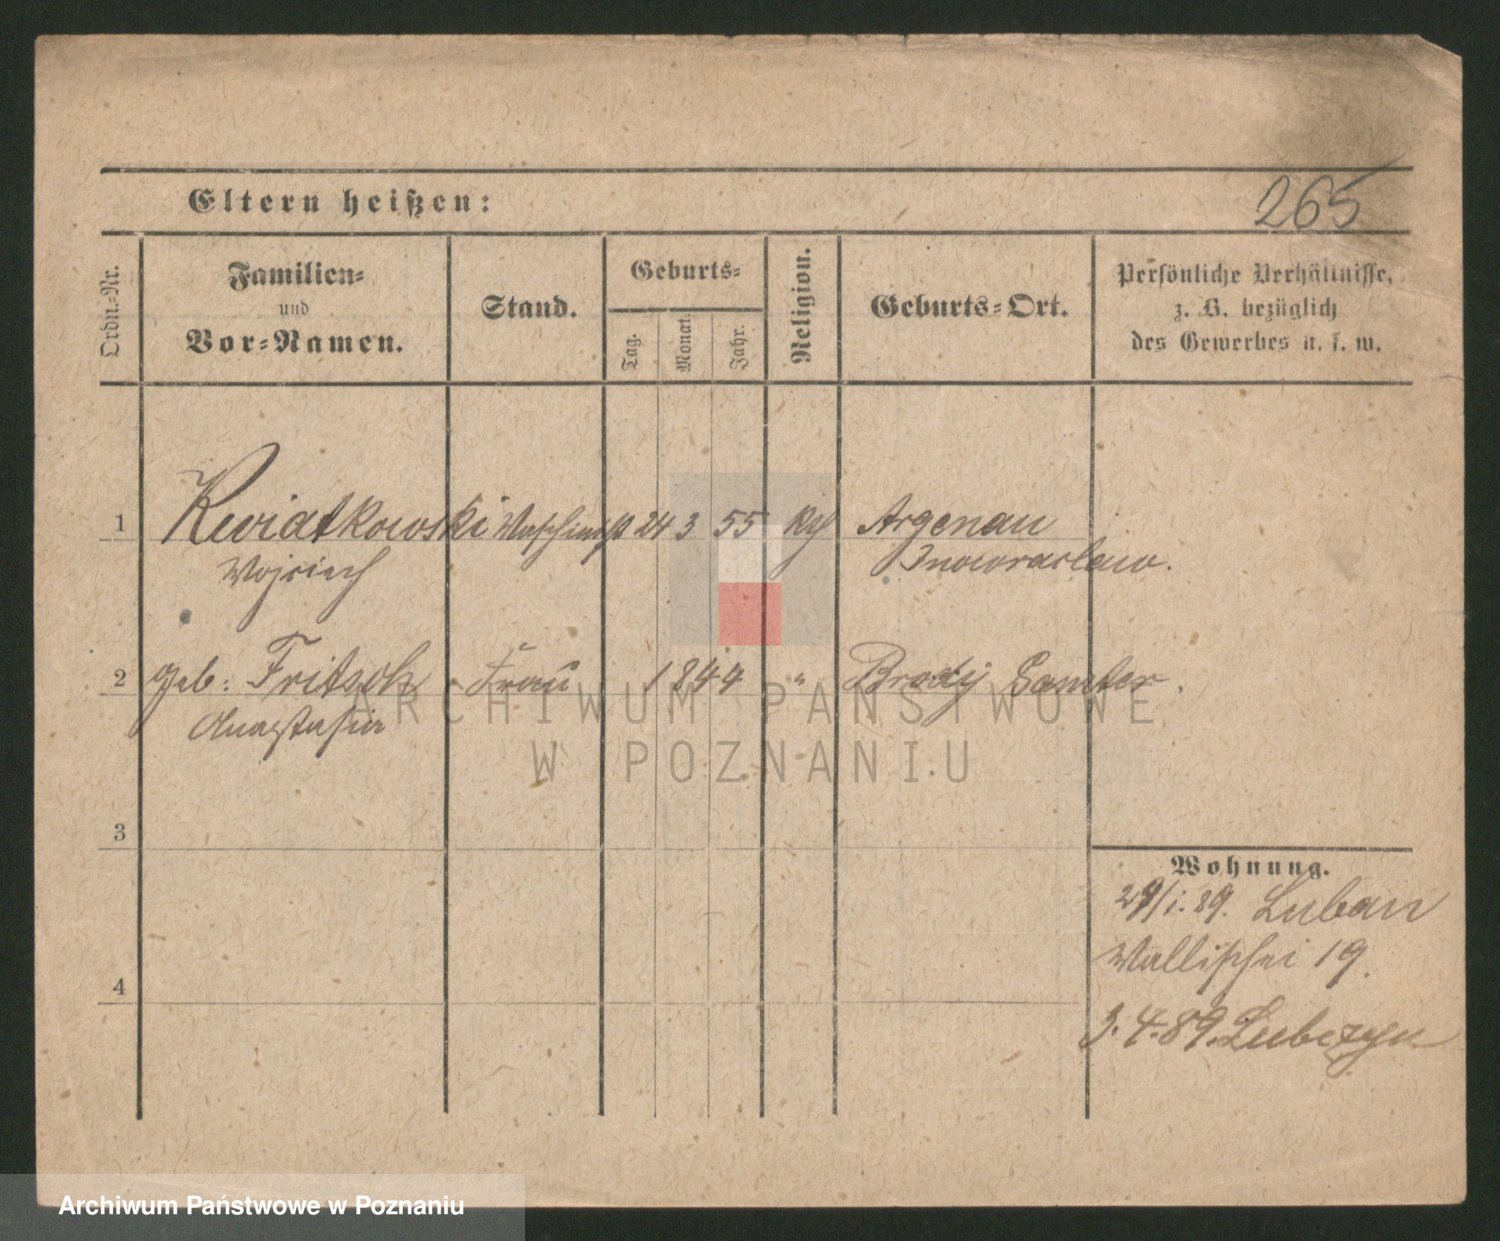 Eltern heißen:
265
Ordn.-Nr.
Familien-
und
Vor-Namen.
Stand.
Geburts-
Tag.
Monat.
Jahr.
Religion.
Geburts-Ort.
Persönliche Verhältnisse,
z. B. bezüglich
des Gewerbes u. s. w.
1 Kwiatkowski Maschinist 24 3 55 Argenau
Wojciech Inowraclaw.
2 geb: Fritsch Frau 1844 " Brody Samter.
Anastasia
3
4
Wohnung.
29/1.89. Luban
Wallischei 19.
3.4.89. Lubczyn
ARCHIWUM PAŃSTWOWE
W POZNANIU
Archiwum Państwowe w Poznaniu